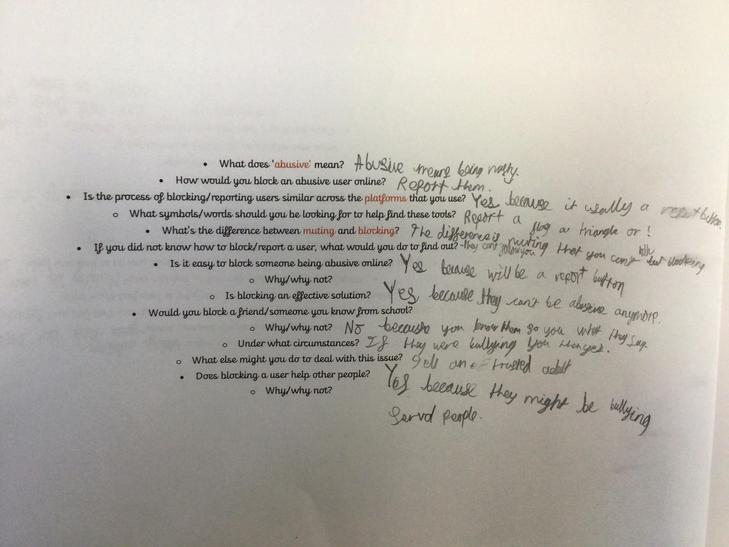 • What does 'abusive' mean? Abusive means being nasty.
• How would you block an abusive user online? Report them.
• Is the process of blocking/reporting users similar across the platforms that you use? Yes because it usally a report button.
○ What symbols/words should you be looking for to help find these tools? Report a flag a triangle or !
• What's the difference between muting and blocking? The difference is muting that you can't but blocking they can't
• If you did not know how to block/report a user, what would you do to find out?
• Is it easy to block someone being abusive online? Yes because will be a report button
○ Why/why not?
○ Is blocking an effective solution? Yes, because they can't be abusive anymore.
• Would you block a friend/someone you know from school?
○ Why/why not? No because you know them so you what they say.
○ Under what circumstances? If they were bullying you
○ What else might you do to deal with this issue? trusted adult
• Does blocking a user help other people? Yes because they might be bullying
○ Why/why not?
people.